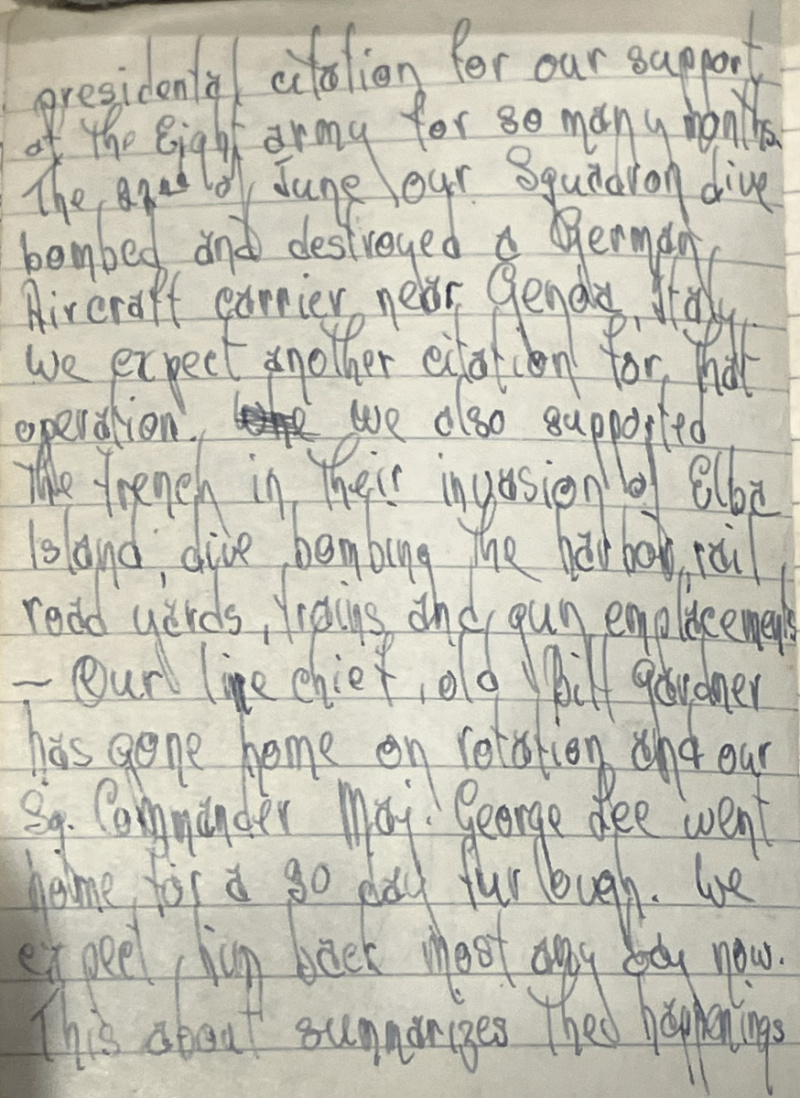 presidental citation for our support
of the Eight army for so many months.
The 22nd of June our Squadron dive
bombed and destroyed a German
Aircraft carrier near Genoa, Italy.
We expect another citation for that
operation. We also supported
the french in their invasion of Elba
Island, dive bombing the harbor, rail
road yards, trains and gun emplacements
— Our line chief, old Bill Gardner
has gone home on rotation and our
Sq. Commander Maj. George Lee went
home for a 30 day furlough. We
expect him back most any day now.
This about summarizes the happenings